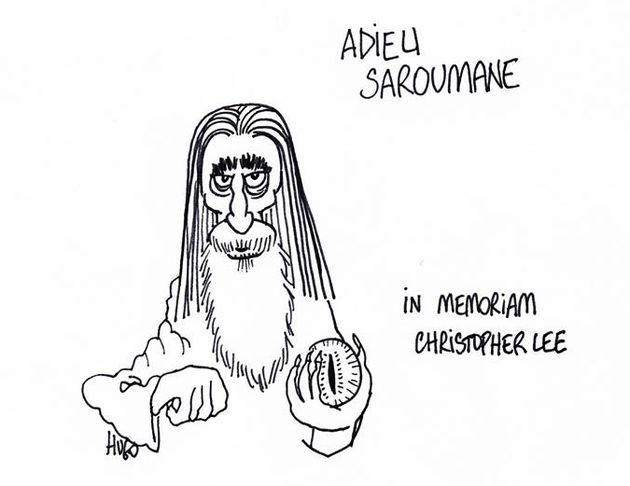 ADIEU
SAROUMANE
IN MEMORIAM
CHRISTOPHER LEE
HUGO